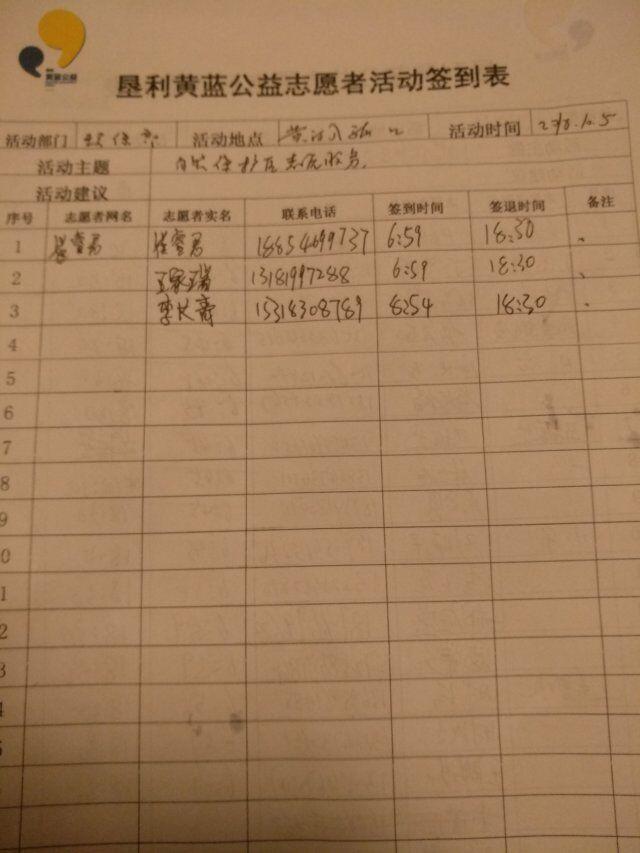 黄蓝公益
垦利黄蓝公益志愿者活动签到表
活动部门 环保部 活动地点 黄河入海口 活动时间 2018.10.5
活动主题 自然保护区志愿服务.
活动建议
序号 志愿者网名 志愿者实名 联系电话 签到时间 签退时间 备注
1 18854699737 6:59 18:30
2 王家瑞 13181997288 6:59 18:30
3 李长寿 15318308789 8:54 18:30
4
5
6
7
8
9
0
1
2
3
4
5